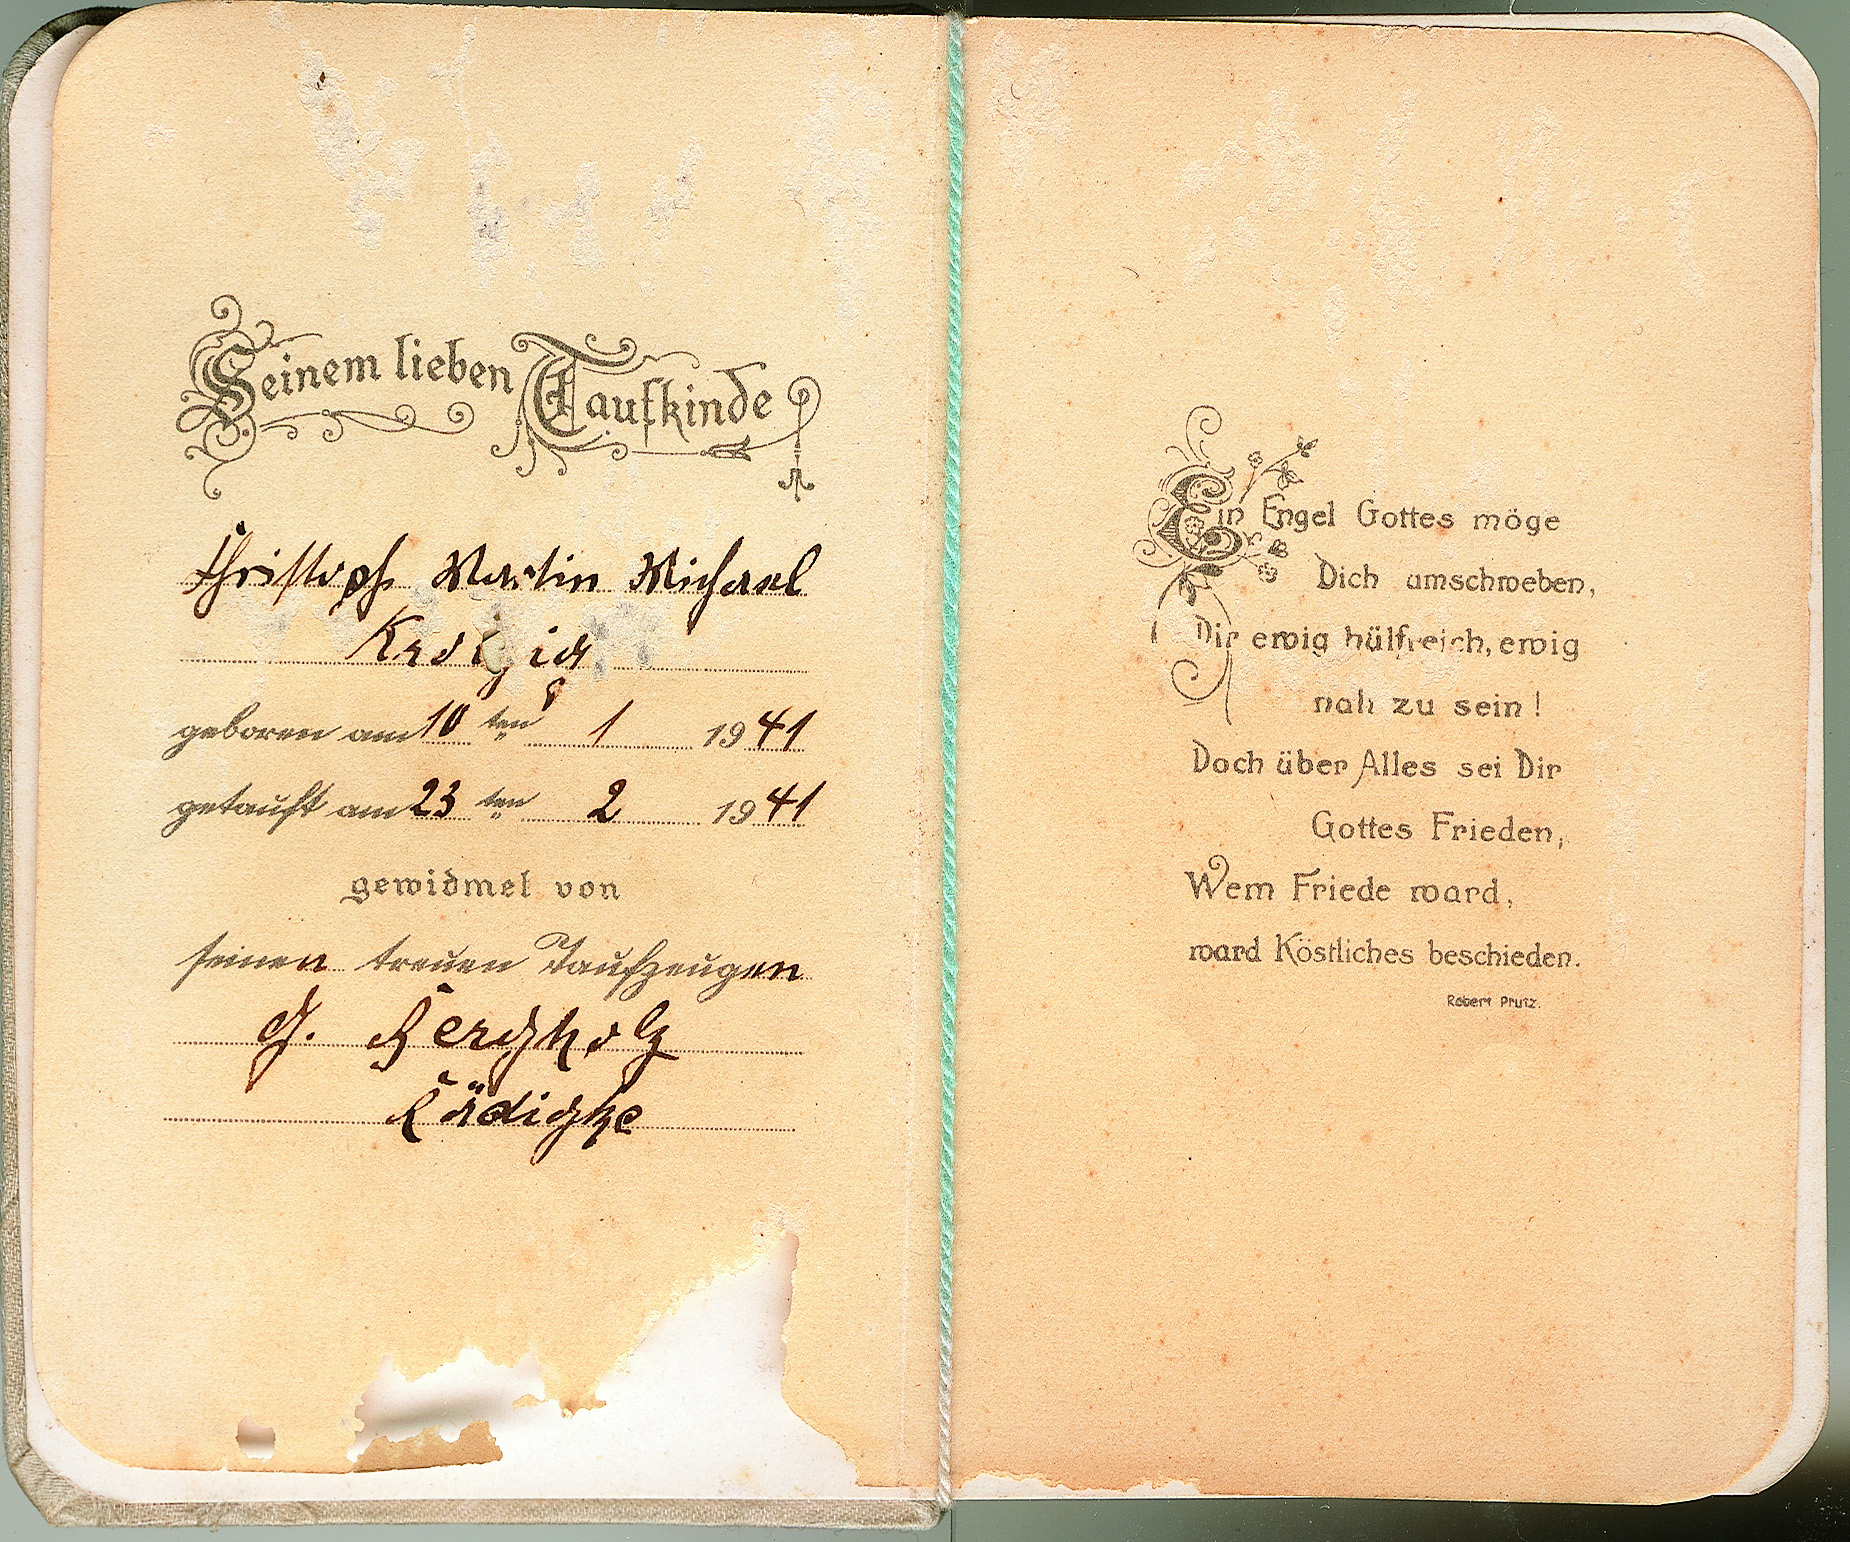 Seinem lieben Taufkinde
Christoph Martin Michael
geboren am 10 ten 1 1941
getauft am 23 ten 2 1941
gewidmet von
seinen treuen Taufzeugen
G. Bergholz
Rädigke
Ein Engel Gottes möge
Dich umschweben,
Dir ewig hülfreich, ewig
nah zu sein!
Doch über Alles sei Dir
Gottes Frieden,
Wem Friede ward,
ward Köstliches beschieden.
Robert Prutz.